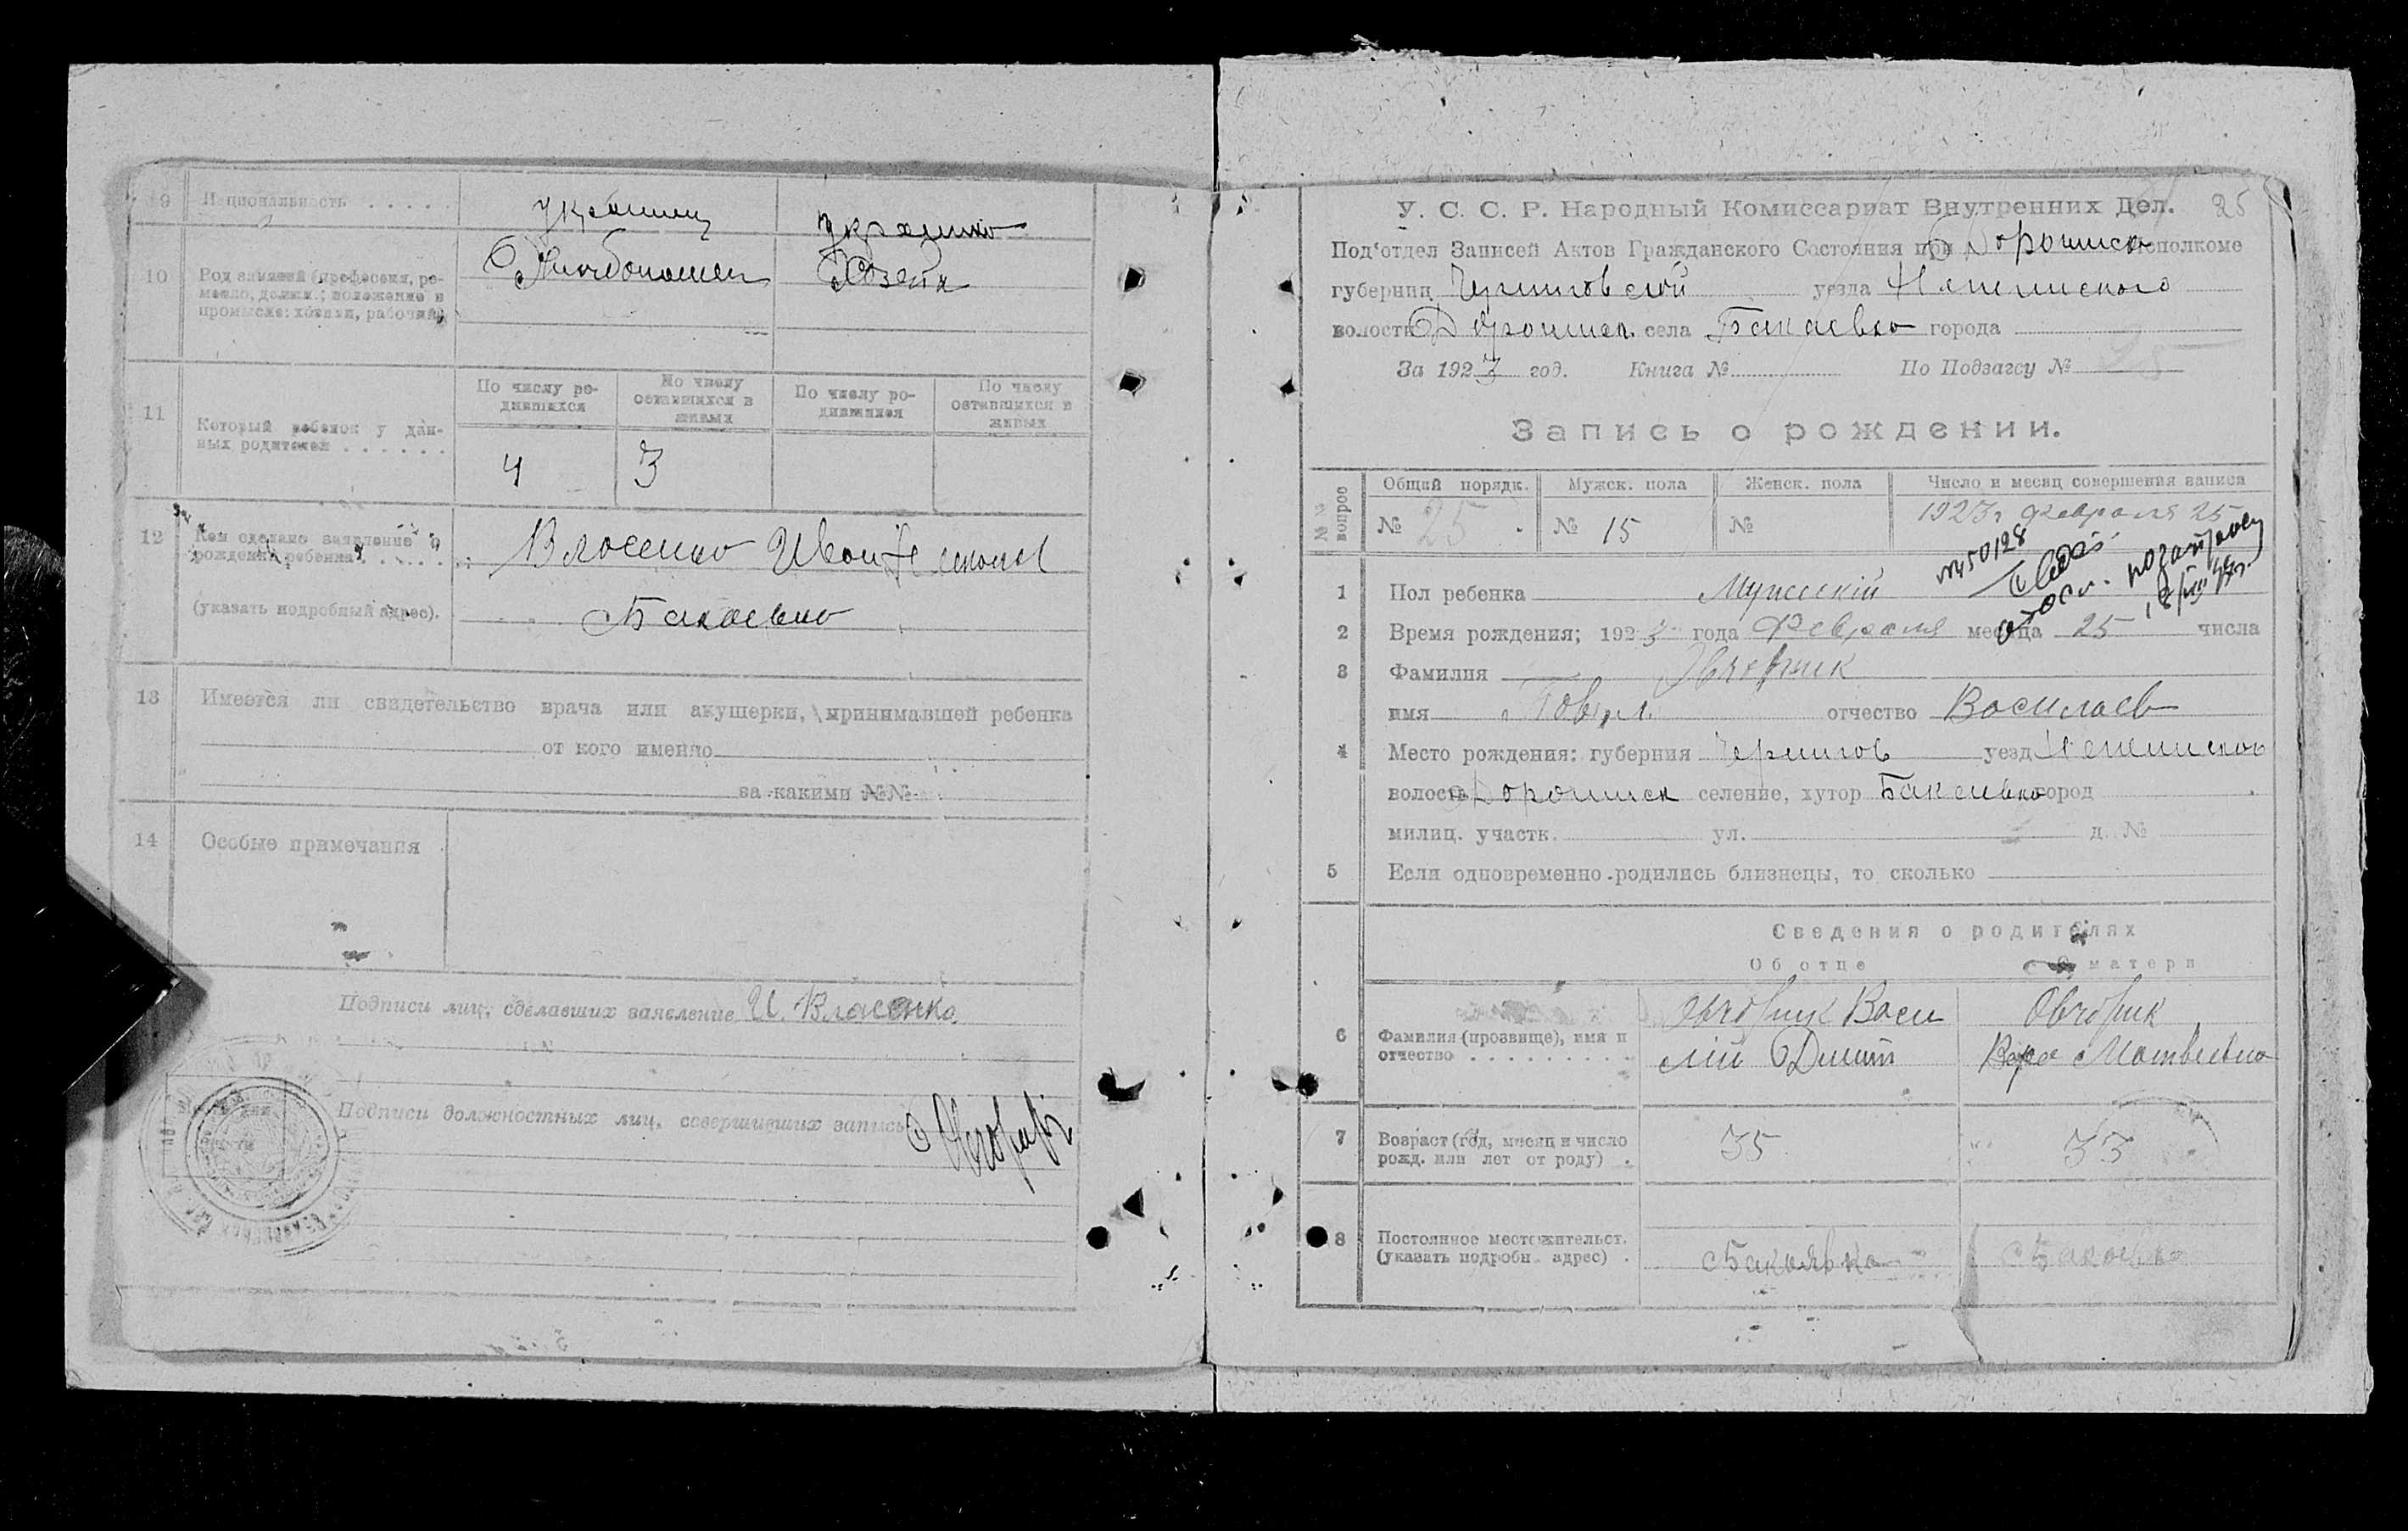 9 Национальность . . . . . украинец украинка
10 Род занятий (профессия, ре-
месло, должн.; положение в
промысле: хозяин, рабочий) Хлебопашец Хозяйка
11 Который ребенок у дан-
ных родителей . . . . . .
По числу ро-
дившихся
По числу
оставшихся в
живых
По числу ро-
дившихся
По числу
оставшихся в
живых
4 3
12 Кем сделано заявление о
рождении ребенка . . . . . . Власенко Иван
(указать подробный адрес). Бакаевка
13 Имеется ли свидетельство врача или акушерки, принимавшей ребенка
от кого именно
за какими №№
14 Особые примечания
Подписи лиц, сделавших заявление И. Власенко
Подписи должностных лиц, совершивших запись
25
У. С. С. Р. Народный Комиссариат Внутренних Дел.
Под'отдел Записей Актов Гражданского Состояния при Дорогинск исполкоме
губернии Черниговской уезда Нежинского
волости Дорогинск. села Бакаевка города
За 1923 год. Книга № По Подзагсу № 25
Запись о рождении.
№№ вопрос
Общий порядк. Мужск. пола Женск. пола Число и месяц совершения записи
№ 25 № 15 № 1923 г февраля 25
1 Пол ребенка Мужескій
2 Время рождения; 1923 года Февраля месяца 25 числа
3 Фамилия Овчарик
имя Гаврил отчество Васильев
4 Место рождения: губерния Чернигов уезд Нежинском
волость Дорогинск селение, хутор Бакаевка город
милиц. участк. ул. д. №
5 Если одновременно родились близнецы, то сколько
Сведения о родителях
Об отце О матери
6 Фамилия (прозвище), имя и
отчество . . . . . . . . .
Овчарик Васи
лій Дмит
Овчарик
Вера Матвеевна
7 Возраст (год, месяц и число
рожд. или лет от роду) . 35 33
8 Постоянное местожительст.
(указать подробн. адрес) . Бакаевка Бакаевка